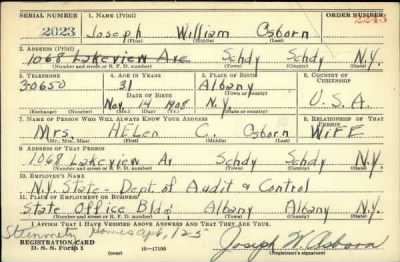 SERIAL NUMBER 1. NAME (Print) ORDER NUMBER
2023 Joseph William Osborn
(First) (Middle) (Last)
2. ADDRESS (Print)
1068 Lakeview Ave Schdy Schdy N.Y.
(Number and street or R. F. D. number) (Town) (County) (State)
3. TELEPHONE 4. AGE IN YEARS 5. PLACE OF BIRTH 6. COUNTRY OF CITIZENSHIP
30650 31 Albany
(Town or county)
DATE OF BIRTH
Nov. 14 1908 N.Y. U.S.A.
(Exchange) (Number) (Mo.) (Day) (Yr.) (State or country)
7. NAME OF PERSON WHO WILL ALWAYS KNOW YOUR ADDRESS 8. RELATIONSHIP OF THAT PERSON
Mrs. HELen C. Osborn WiFE
(Mr., Mrs., Miss) (First) (Middle) (Last)
9. ADDRESS OF THAT PERSON
1068 Lakeview Av Schdy Schdy N.Y.
(Number and street or R. F. D. number) (Town) (County) (State)
10. EMPLOYER'S NAME
N.Y. State - Dept of Audit & Control
11. PLACE OF EMPLOYMENT OR BUSINESS
State Office Bldg Albany Albany N.Y.
(Number and street or R. F. D. number) (Town) (County) (State)
I AFFIRM THAT I HAVE VERIFIED ABOVE ANSWERS AND THAT THEY ARE TRUE.
REGISTRATION CARD
D. S. S. Form 1 (over) 16—17105 Joseph W. Osborn
(Registrant's signature)